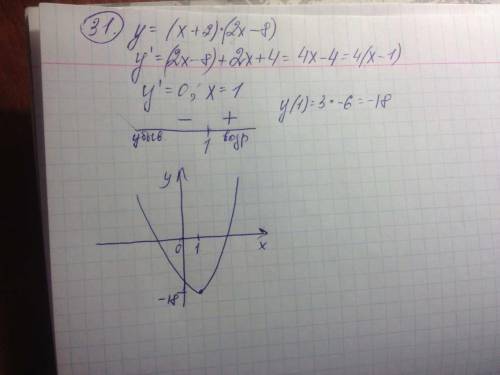 31. y = (x+2)·(2x-8)
y' = (2x-8)+2x+4 = 4x-4 = 4(x-1)
y' = 0; x = 1
y(1) = 3·-6 = -18
- +
убыв 1 возр
y
0 1 x
-18